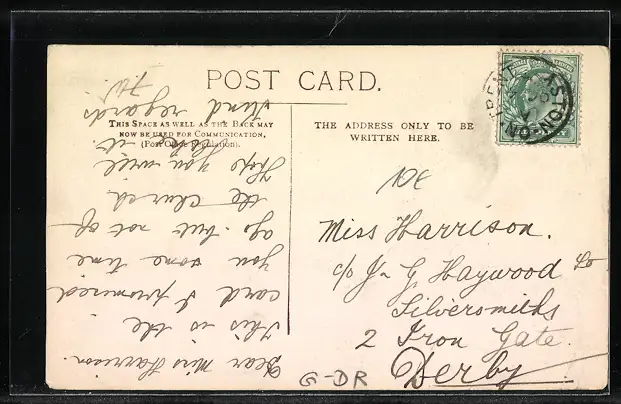 POST CARD.
THIS SPACE AS WELL AS THE BACK MAY
NOW BE USED FOR COMMUNICATION,
(Post Office Regulation).
THE ADDRESS ONLY TO BE
WRITTEN HERE.
ASTON-ON-TRENT
10€
Miss Harrison.
c/o J. G. Haywood Co
Silversmiths
2 Iron Gate.
Derby.
G-DR
Dear Miss Harrison.
This is the
card I promised
you some time
ago. but not of
the church
Hope you will
it.
kind regards